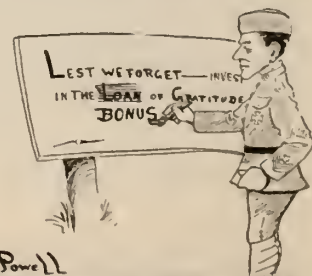 LEST WE FORGET — INVEST
IN THE LOAN OF GRATITUDE
BONUS
Powell